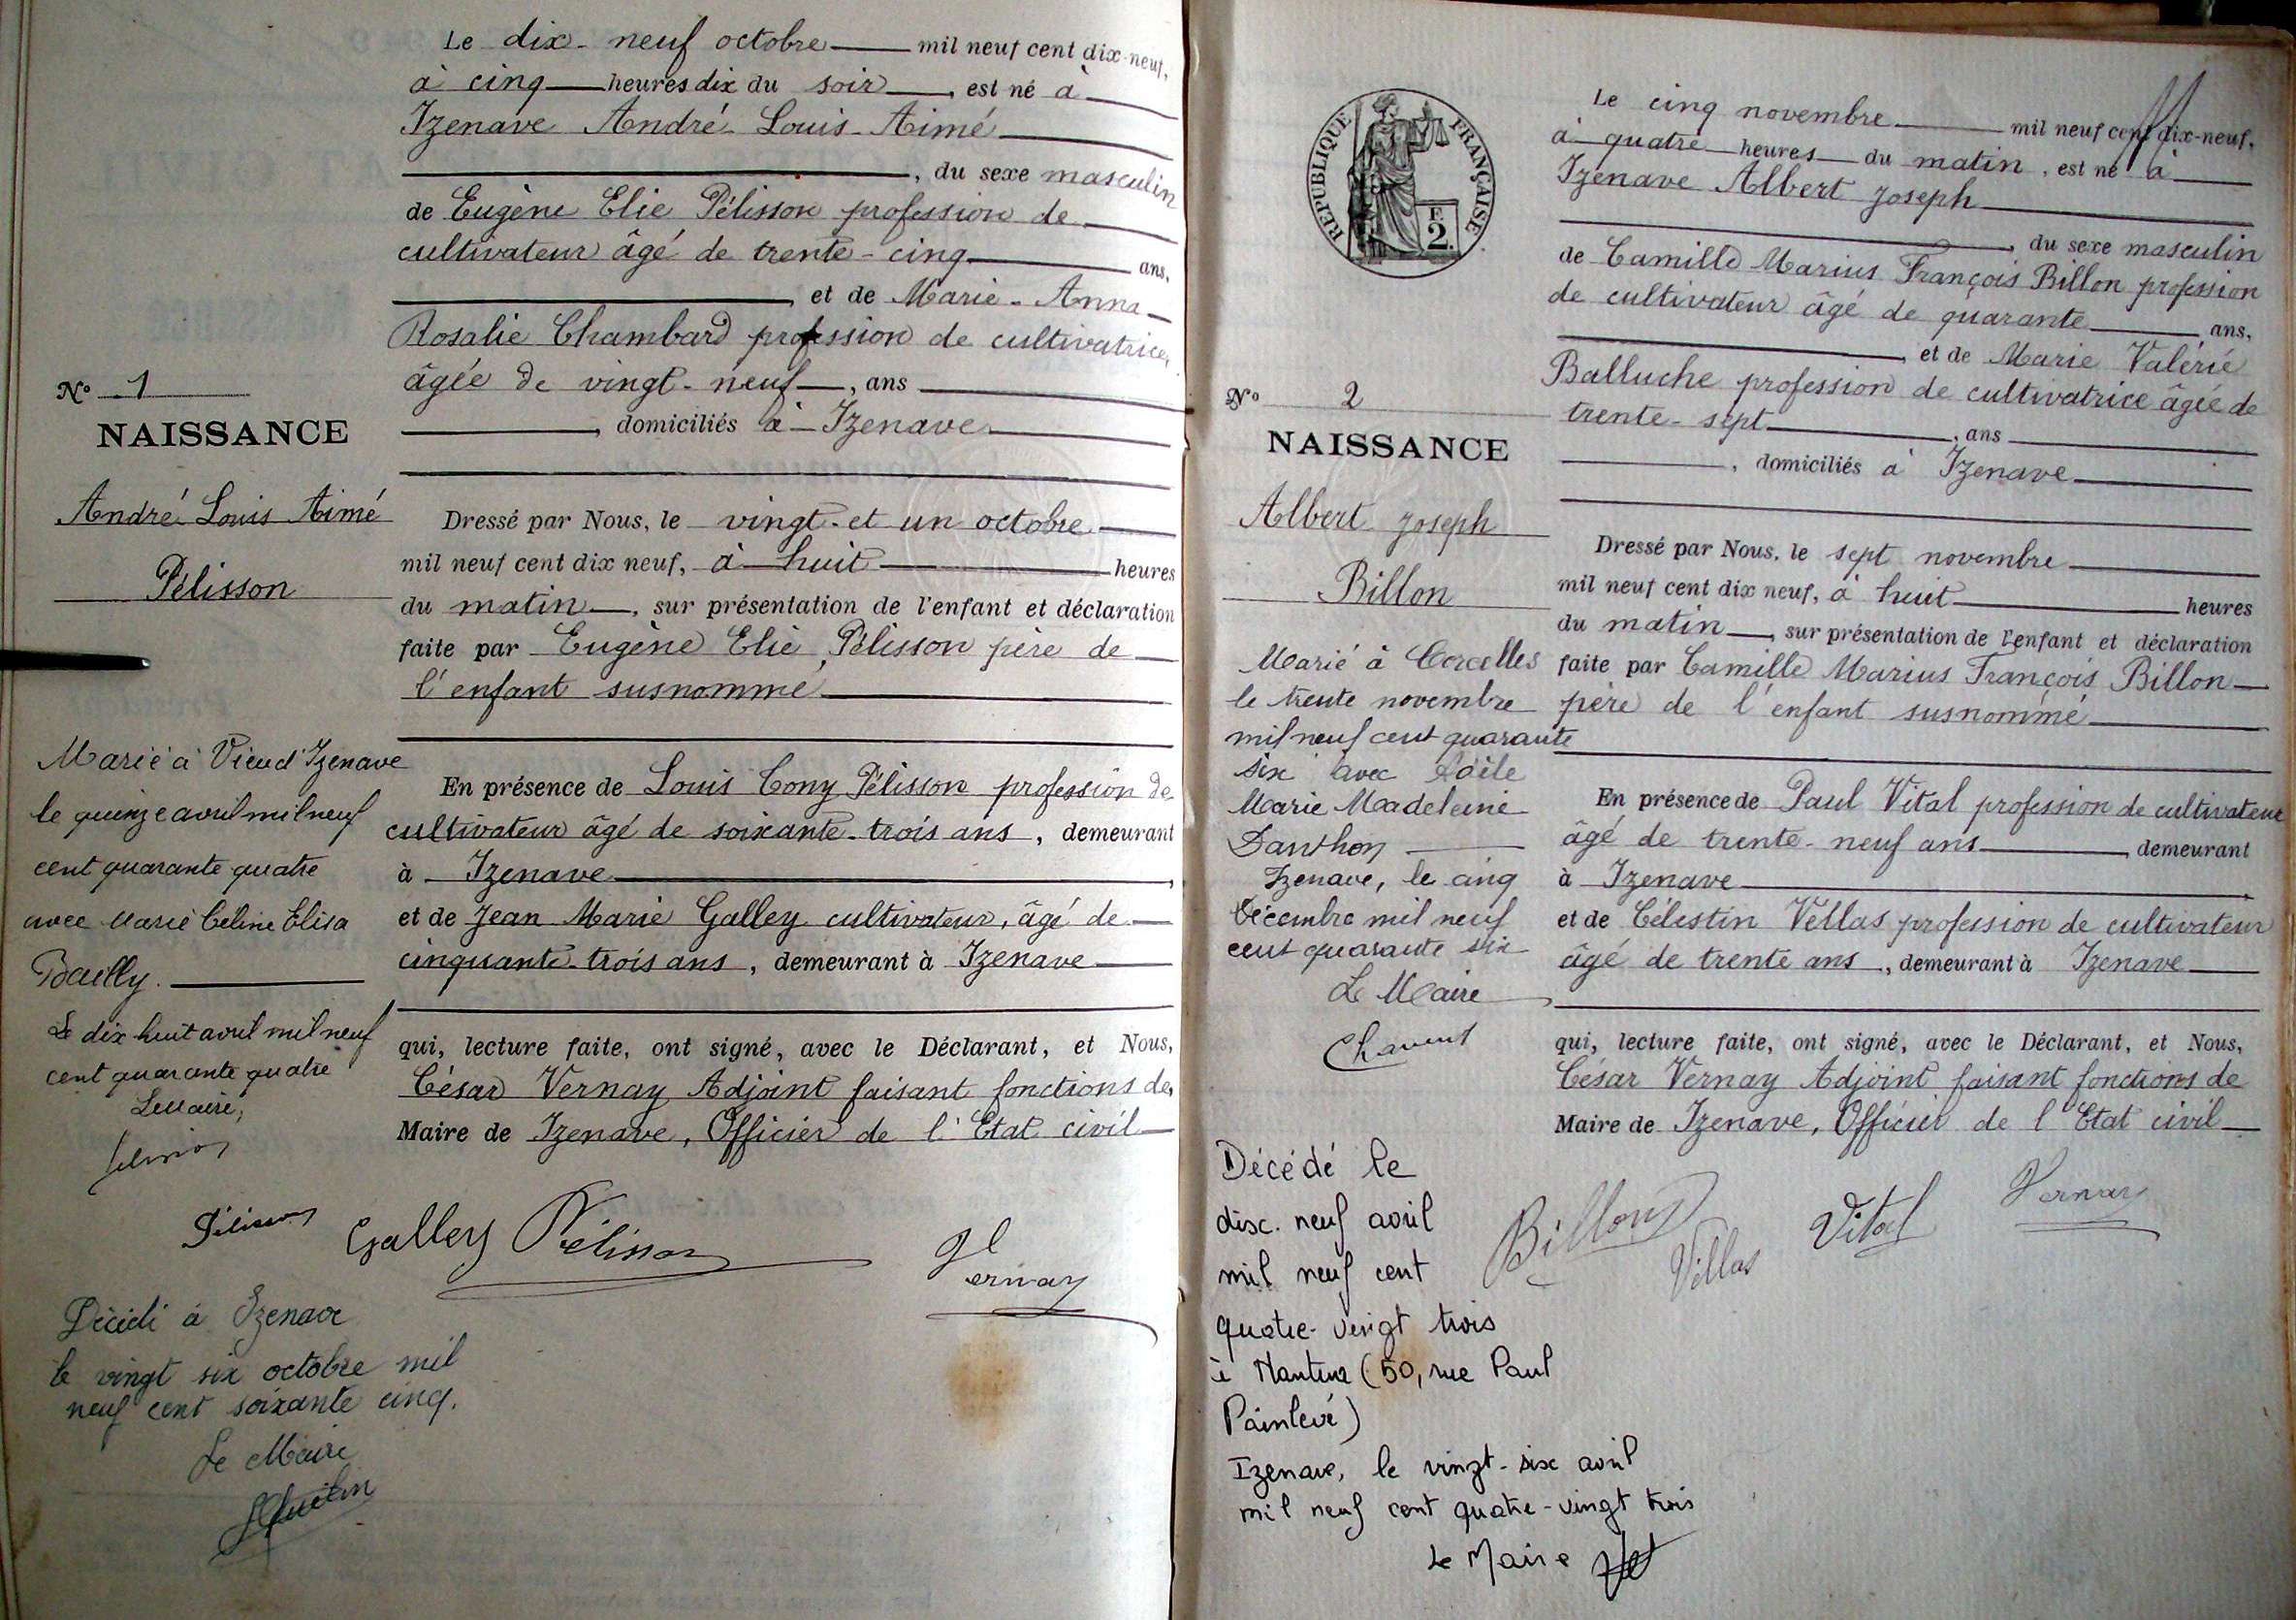 Le dix-neuf octobre mil neuf cent dix-neuf,
à cinq heures dix du soir, est né à
Izenave André Louis Aimé
, du sexe masculin
de Eugène Elie Pélisson profession de
cultivateur âgé de trente-cinq ans,
et de Marie-Anna
Rosalie Chambard profession de cultivatrice,
âgée de vingt-neuf, ans
, domiciliés à Izenave
No 1
NAISSANCE
André Louis Aimé
Pélisson
Dressé par Nous, le vingt-et un octobre
mil neuf cent dix neuf, à huit heures
du matin, sur présentation de l'enfant et déclaration
faite par Eugène Elie Pélisson père de
l'enfant susnommé
En présence de Louis Tony Pélisson profession de
cultivateur âgé de soixante-trois ans, demeurant
à Izenave,
et de Jean Marie Galley cultivateur, âgé de
cinquante-trois ans, demeurant à Izenave
qui, lecture faite, ont signé, avec le Déclarant, et Nous,
César Vernay Adjoint faisant fonctions de
Maire de Izenave, Officier de l'Etat civil
Marié à Vieu d'Izenave
le quinze avril mil neuf
cent quarante quatre
avec Marie Celine Elisa
Bailly.
Le dix huit avril mil neuf
cent quarante quatre
Le Maire,
Pélisson
Galley
Pélisson
Vernay
Décédé à Izenave
le vingt six octobre mil
neuf cent soixante cinq.
Le Maire
REPUBLIQUE FRANÇAISE
F.
2.
Le cinq novembre mil neuf cent dix-neuf,
à quatre heures du matin, est né à
Izenave Albert Joseph
, du sexe masculin
de Camille Marius François Billon profession
de cultivateur âgé de quarante ans,
, et de Marie Valérie
Balluche profession de cultivatrice âgée de
trente-sept, ans
, domiciliés à Izenave
No 2
NAISSANCE
Albert Joseph
Billon
Dressé par Nous, le sept novembre
mil neuf cent dix neuf, à huit heures
du matin, sur présentation de l'enfant et déclaration
faite par Camille Marius François Billon
père de l'enfant susnommé
En présence de Paul Vital profession de cultivateur
âgé de trente-neuf ans, demeurant
à Izenave,
et de Célestin Vellas profession de cultivateur
âgé de trente ans, demeurant à Izenave
qui, lecture faite, ont signé, avec le Déclarant, et Nous,
César Vernay Adjoint faisant fonctions de
Maire de Izenave, Officier de l'Etat civil
Marié à Corcelles
le trente novembre
mil neuf cent quarante
six avec
Marie Madeleine
Danthon
Izenave, le cinq
décembre mil neuf
cent quarante six
Le Maire
Billon
Vellas
Vital
Vernay
Décédé le
dix-neuf avril
mil neuf cent
quatre-vingt trois
à Nantua (50, rue Paul
Painlevé)
Izenave, le vingt-six avril
mil neuf cent quatre-vingt trois
Le Maire